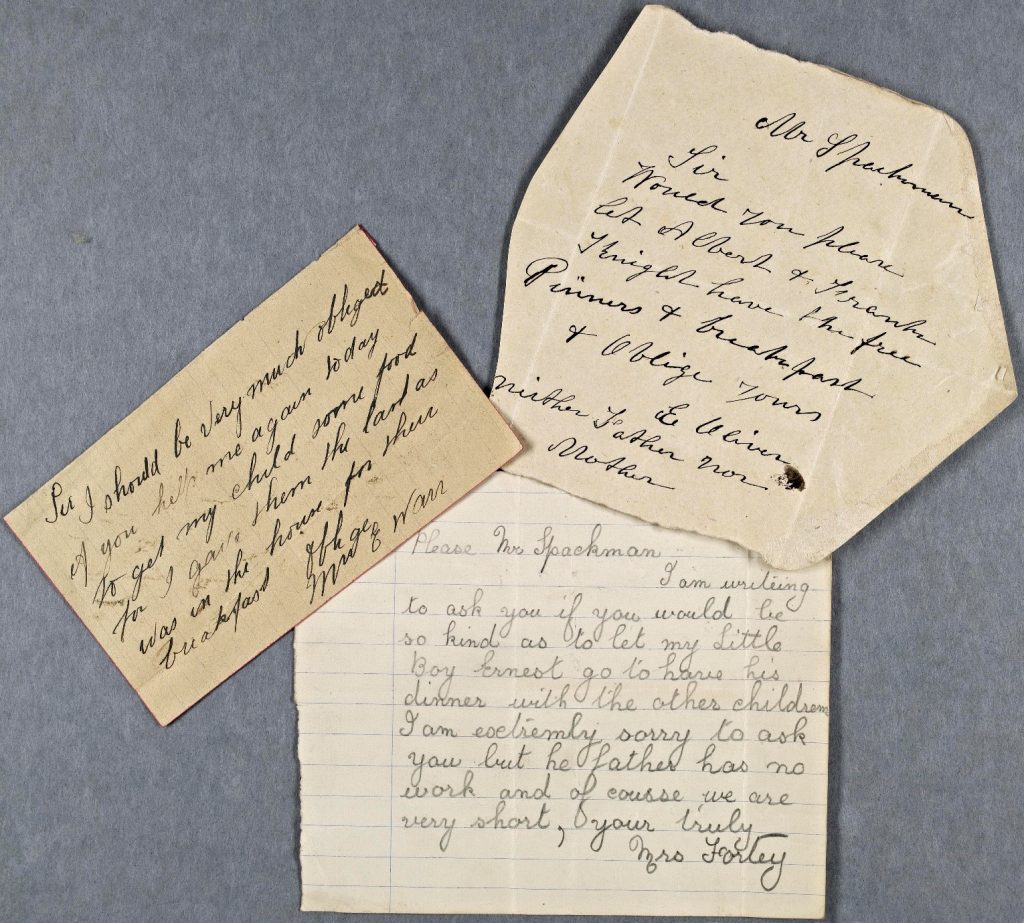 Mr Spackman
Sir
Would you please
let Albert & Frank
Knight have the free
Dinners & breakfast
& Oblige yours
E Oliver
neither Father nor
Mother
Sir I should be very much obliged
if you help me again today
to get my child some food
for I gave them the last as
was in the house for their
breakfast Oblige
Mrs E Warr
Please Mr Spackman
I am writeing
to ask you if you would be
so kind as to let my Little
Boy Ernest go to have his
dinner with the other children
I am exctremly sorry to ask
you but he father has no
work and of cousse we are
very short, your truly
Mrs Fortey